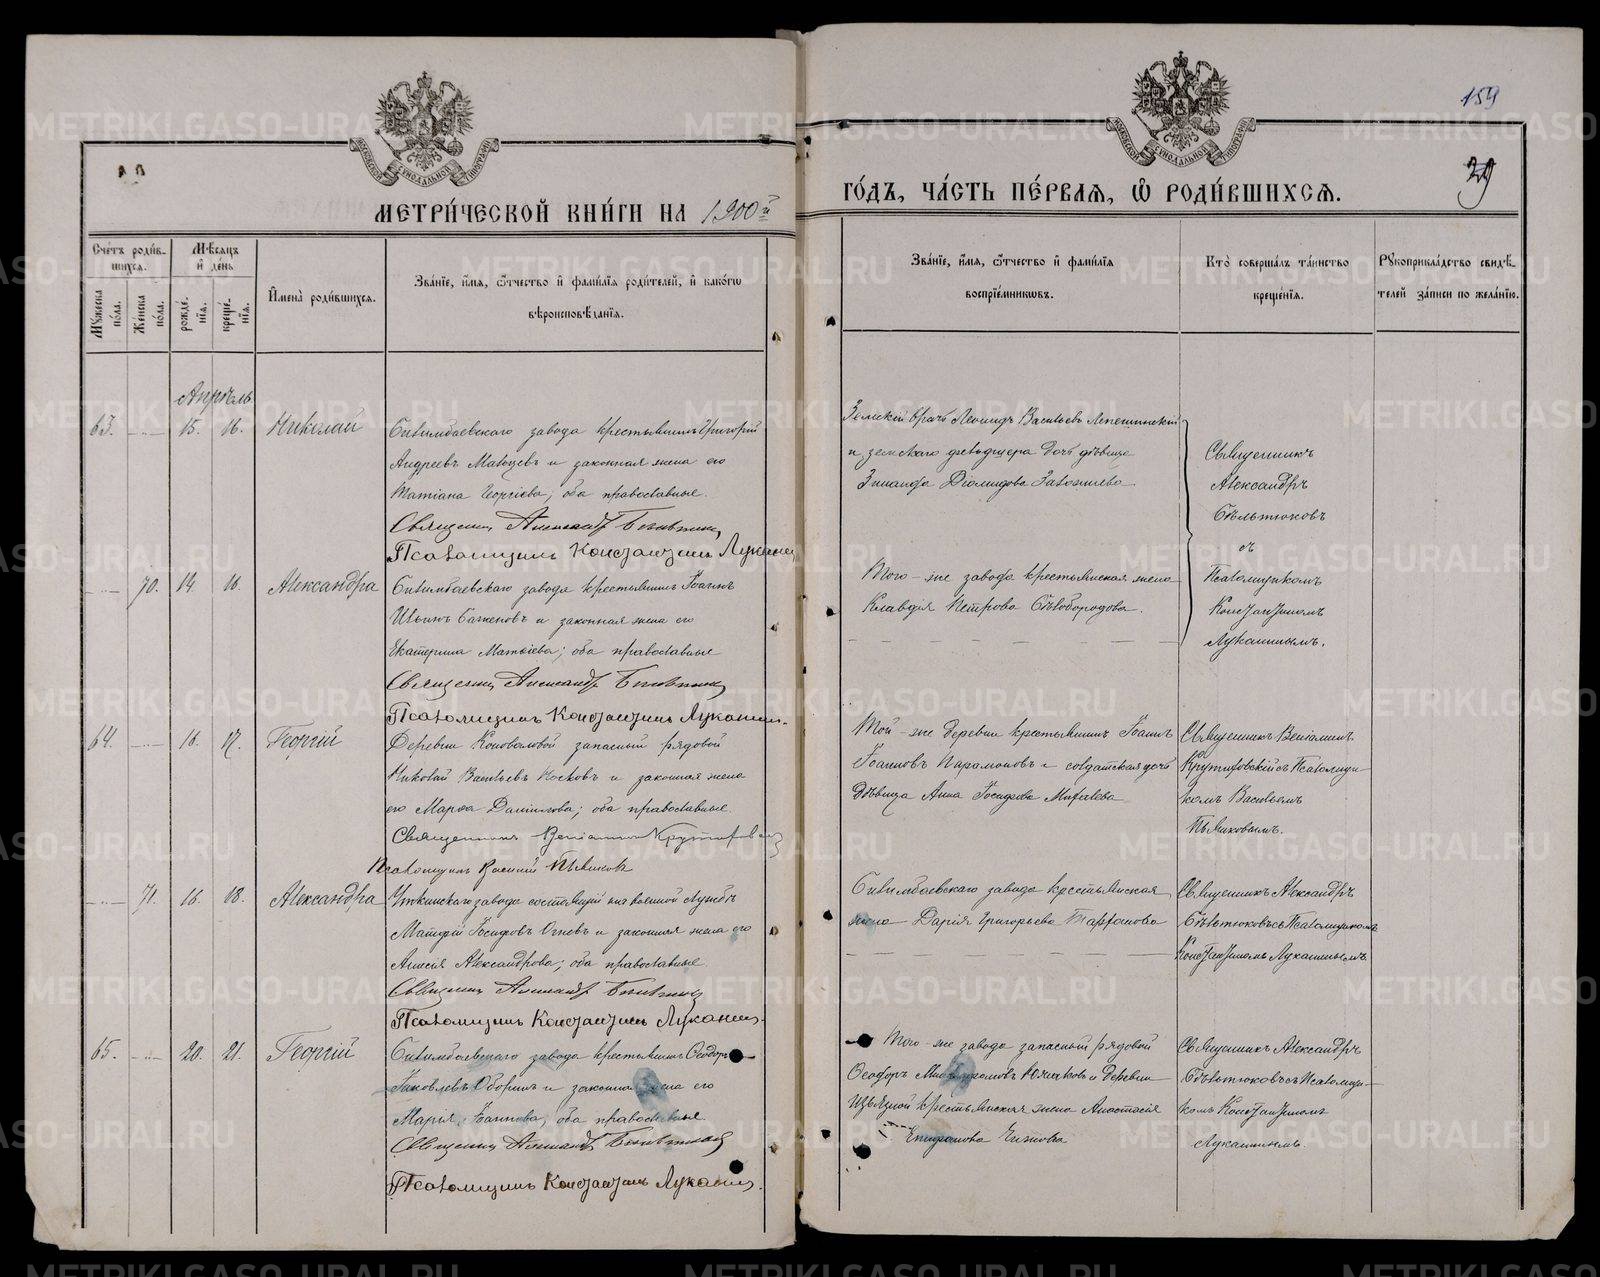 159
29
МЕТРИ́ЧЕСКОЙ КНИ́ГИ НА 1900й
ГО́ДЪ, ЧА́СТЬ ПЕ́РВАЯ, Ѿ РОДИ́ВШИХСЯ.
Сче́тъ роди́в-
шихся.
Му́жеска по́ла.
Же́нска по́ла.
Мѣ́сяцъ
и де́нь
рожде́-
нїя.
креще́-
нїя.
И҆мена̀ роди́вшихся.
Зва́нїе, и҆́мя, ѻ҆́тчество и҆ фами́лїя роди́телей, и҆ како́гѡ
вѣроисповѣ́данїя.
Зва́нїе, и҆́мя, ѻ҆́тчество и҆ фами́лїя
воспрїе́мниковъ.
Кто̀ соверша́лъ та́инство
креще́нїя.
Рꙋкоприкла́дство свидѣ́-
телей за́писи по жела́нїю.
Апрѣль
63. 15. 16. Николай
Билимбаевскаго завода крестьянинъ Григорій
Андреевъ и законная жена его
Татіана Георгіева, оба православные.
Священник Александр Бельтюков
Псаломщикъ Константинъ Луканин
Земскій врачъ Леонидъ Васильевъ Лепешинскій
и земскаго фельдшера дочь дѣвица
Зинаида Діомидова
Священникъ
Александръ
Бѣльтюковъ
съ
Псаломщикомъ
Константиномъ
Луканинымъ.
70. 14. 16. Александра
Билимбаевскаго завода крестьянинъ Іоаннъ
Ильинъ Баженовъ и законная жена его
Екатерина Матѳіева; оба православные
Священник Александр Бельтюков
Псаломщикъ Константинъ Луканин.
Того-же завода крестьянская жена
Клавдія Петрова Бѣлобородова.
64. 16. 17. Георгій
Деревни Коноваловой запасный рядовой
Николай Васильевъ и законная жена
его Марѳа Даніилова; оба православные.
Священникъ Веніаминъ
Псаломщикъ Василій
Той-же деревни крестьянинъ Іоаннъ
Іоанновъ Парамоновъ и солдатская дочь
Дѣвица Анна Іосифова
Священникъ Веніаминъ
съ Псаломщи-
комъ Васильемъ
71. 16. 18. Александра
Уткинскаго завода состоящій на военной службѣ
Іосифовъ Огневъ и законная жена его
Александрова; оба православные.
Священник Александр Бельтюков
Псаломщикъ Константинъ Луканин.
Билимбаевскаго завода крестьянская
жена Дарія Григорьева
Священникъ Александръ
Бѣльтюковъ съ Псаломщикомъ
Константиномъ Луканинымъ
65. 20. 21. Георгій
Билимбаевскаго завода крестьянинъ Ѳеодоръ
Іаковлевъ Оборинъ и законная жена его
Марія Іоаннова, оба православные
Священник Александр Бельтюков
Псаломщикъ Константинъ Луканин.
Того-же завода запасный рядовой
Ѳеодоръ и деревни
крестьянская жена Анастасія
Епифанова
Священникъ Александръ
Бѣльтюковъ съ Псаломщи-
комъ Константиномъ
Луканинымъ.
METRIKI.GASO-URAL.RU